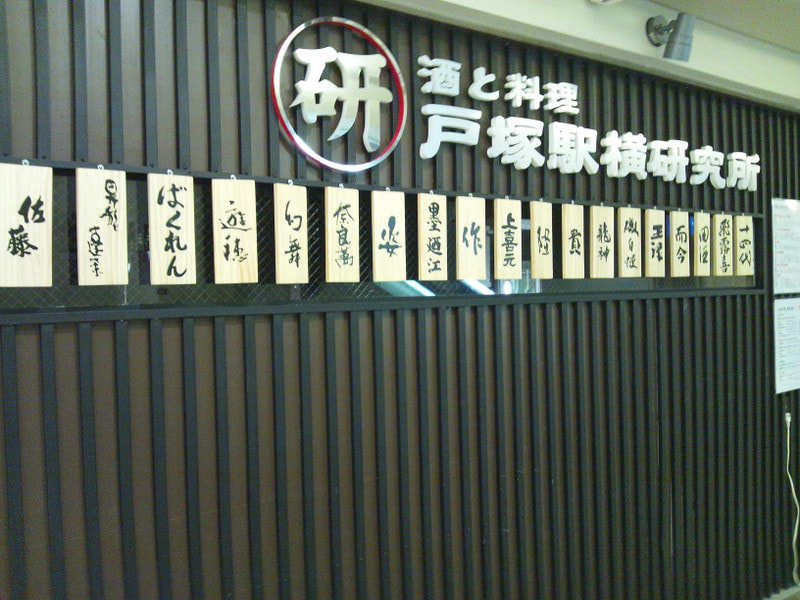 研
酒と料理
戸塚駅横研究所
十四代
飛露喜
田酒
而今
磯自慢
龍神
貴
上喜元
作
墨廼江
姿
奈良萬
幻舞
遊穂
ばくれん
佐藤